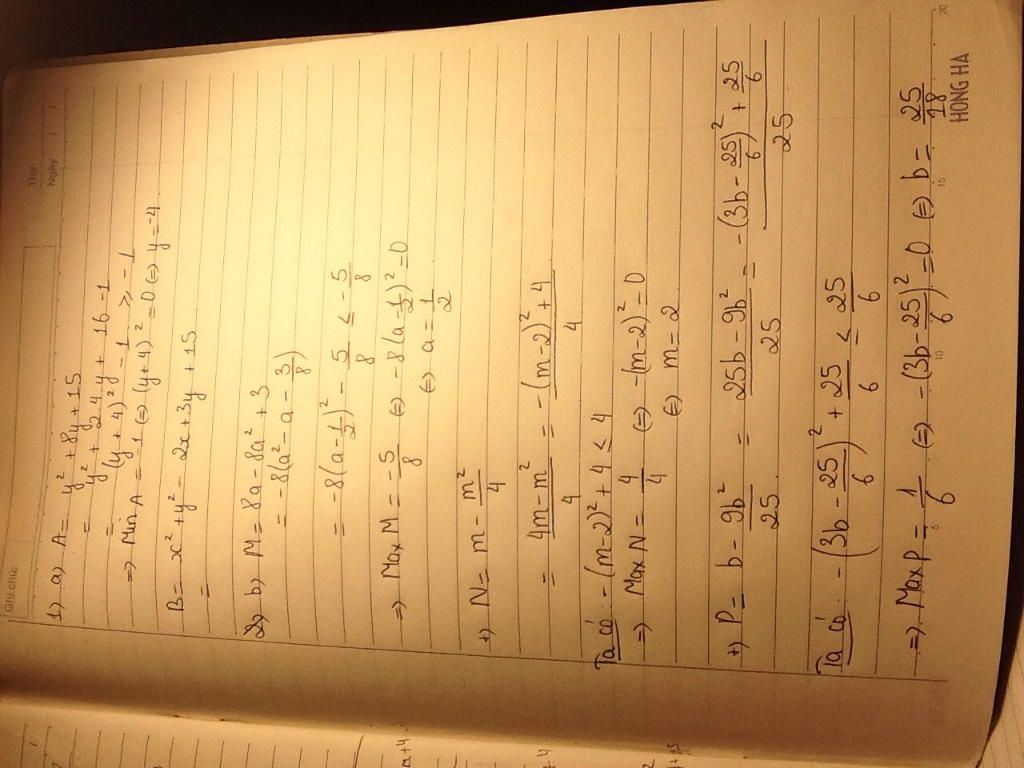 Ghi chú:
Thứ
Ngày / /
1) a) A = y² + 8y + 15
= y² + 2.4.y + 16 - 1
= (y + 4)²y - 1 ≥ -1
=> Min A = -1 (=) (y+4)² = 0 (=) y = -4
B = x² + y² - 2x + 3y + 15
=
2) b) M = 8a - 8a² + 3
= -8(a² - a - 3/8)
= -8(a - 1/2)² - 5/8 ≤ -5/8
=> Max M = -5/8 (=) -8(a - 1/2)² = 0
(=) a = 1/2
+) N = m - m²/4
= (4m - m²)/4 = (-(m-2)² + 4)/4
Ta có: -(m-2)² + 4 ≤ 4
=> Max N = 4/4 (=) -(m-2)² = 0
(=) m = 2
+) P = b - 9b²/25 = (25b - 9b²)/25 = (-(3b - 25/6)² + 25/6)/25
Ta có: -(3b - 25/6)² + 25/6 ≤ 25/6
=> Max P = 1/6 (=) -(3b - 25/6)² = 0 (=) b = 25/18
5 10 15 20
HONG HA